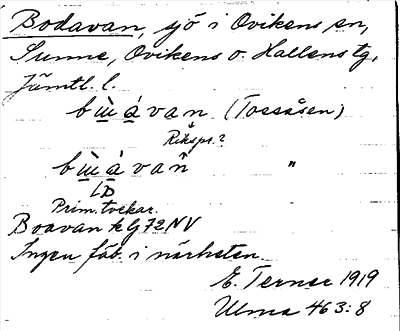 Bodavan, sjö i Ovikens sn,
Sunne, Ovikens o. Hallens tg,
Jämtl. l.
bẁ̤ávan (Tossåsen)
Rikspr.?
bẁ̤ávan̂ "
LD
Prim. tvekar.
Boavan kG72NV
Ingen fäb. i närheten.
E. Terner 1919
Ulma 463:8